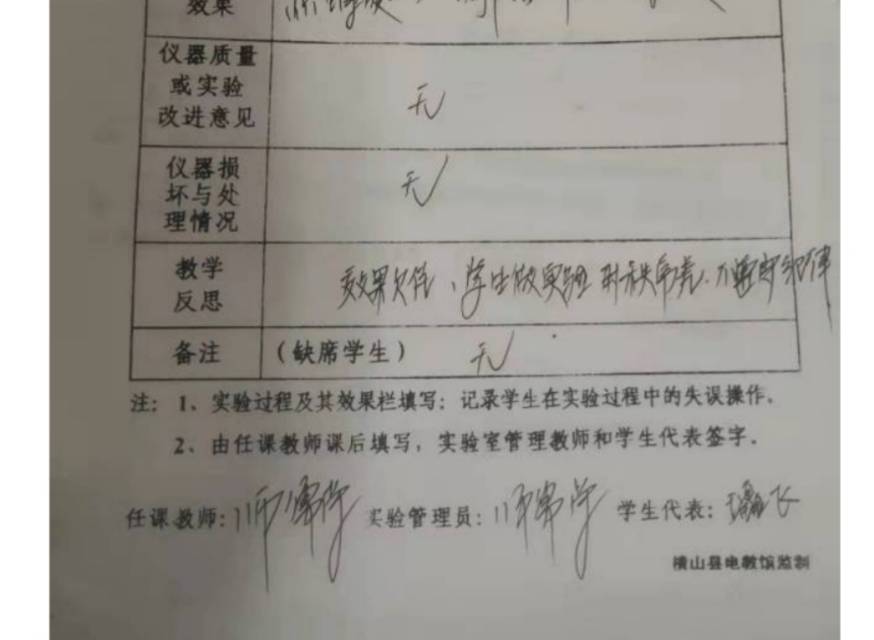 效果
仪器质量
或实验
改进意见
无
仪器损
坏与处
理情况
无
教学
反思
效果欠佳、学生做实验时秩序差.不遵守纪律
备注
(缺席学生)
无
注: 1、实验过程及其效果栏填写: 记录学生在实验过程中的失误操作。
2、由任课教师课后填写, 实验室管理教师和学生代表签字.
任课教师: 实验管理员: 学生代表:
横山县电教馆监制